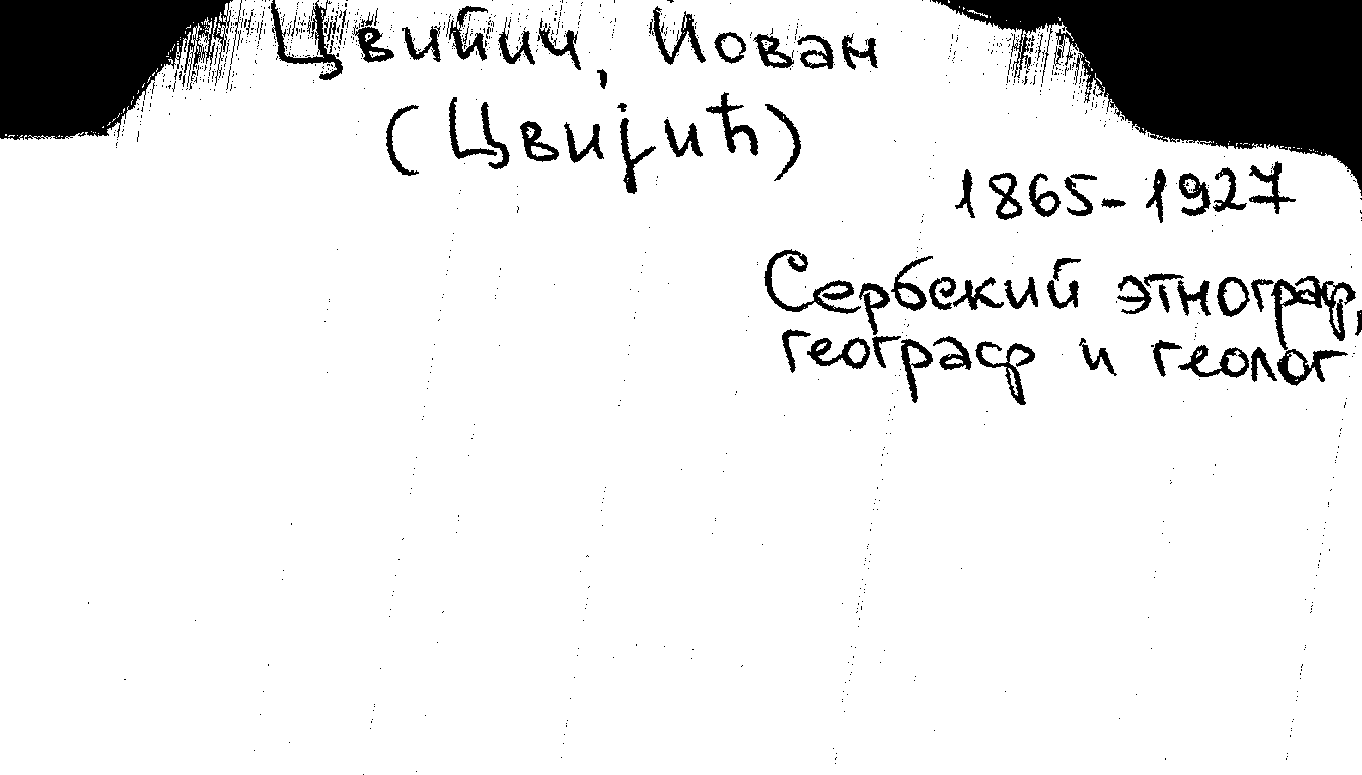 Цвийич, Йован
(Цвијић)
1865-1927
Сербский этнограф,
географ и геолог